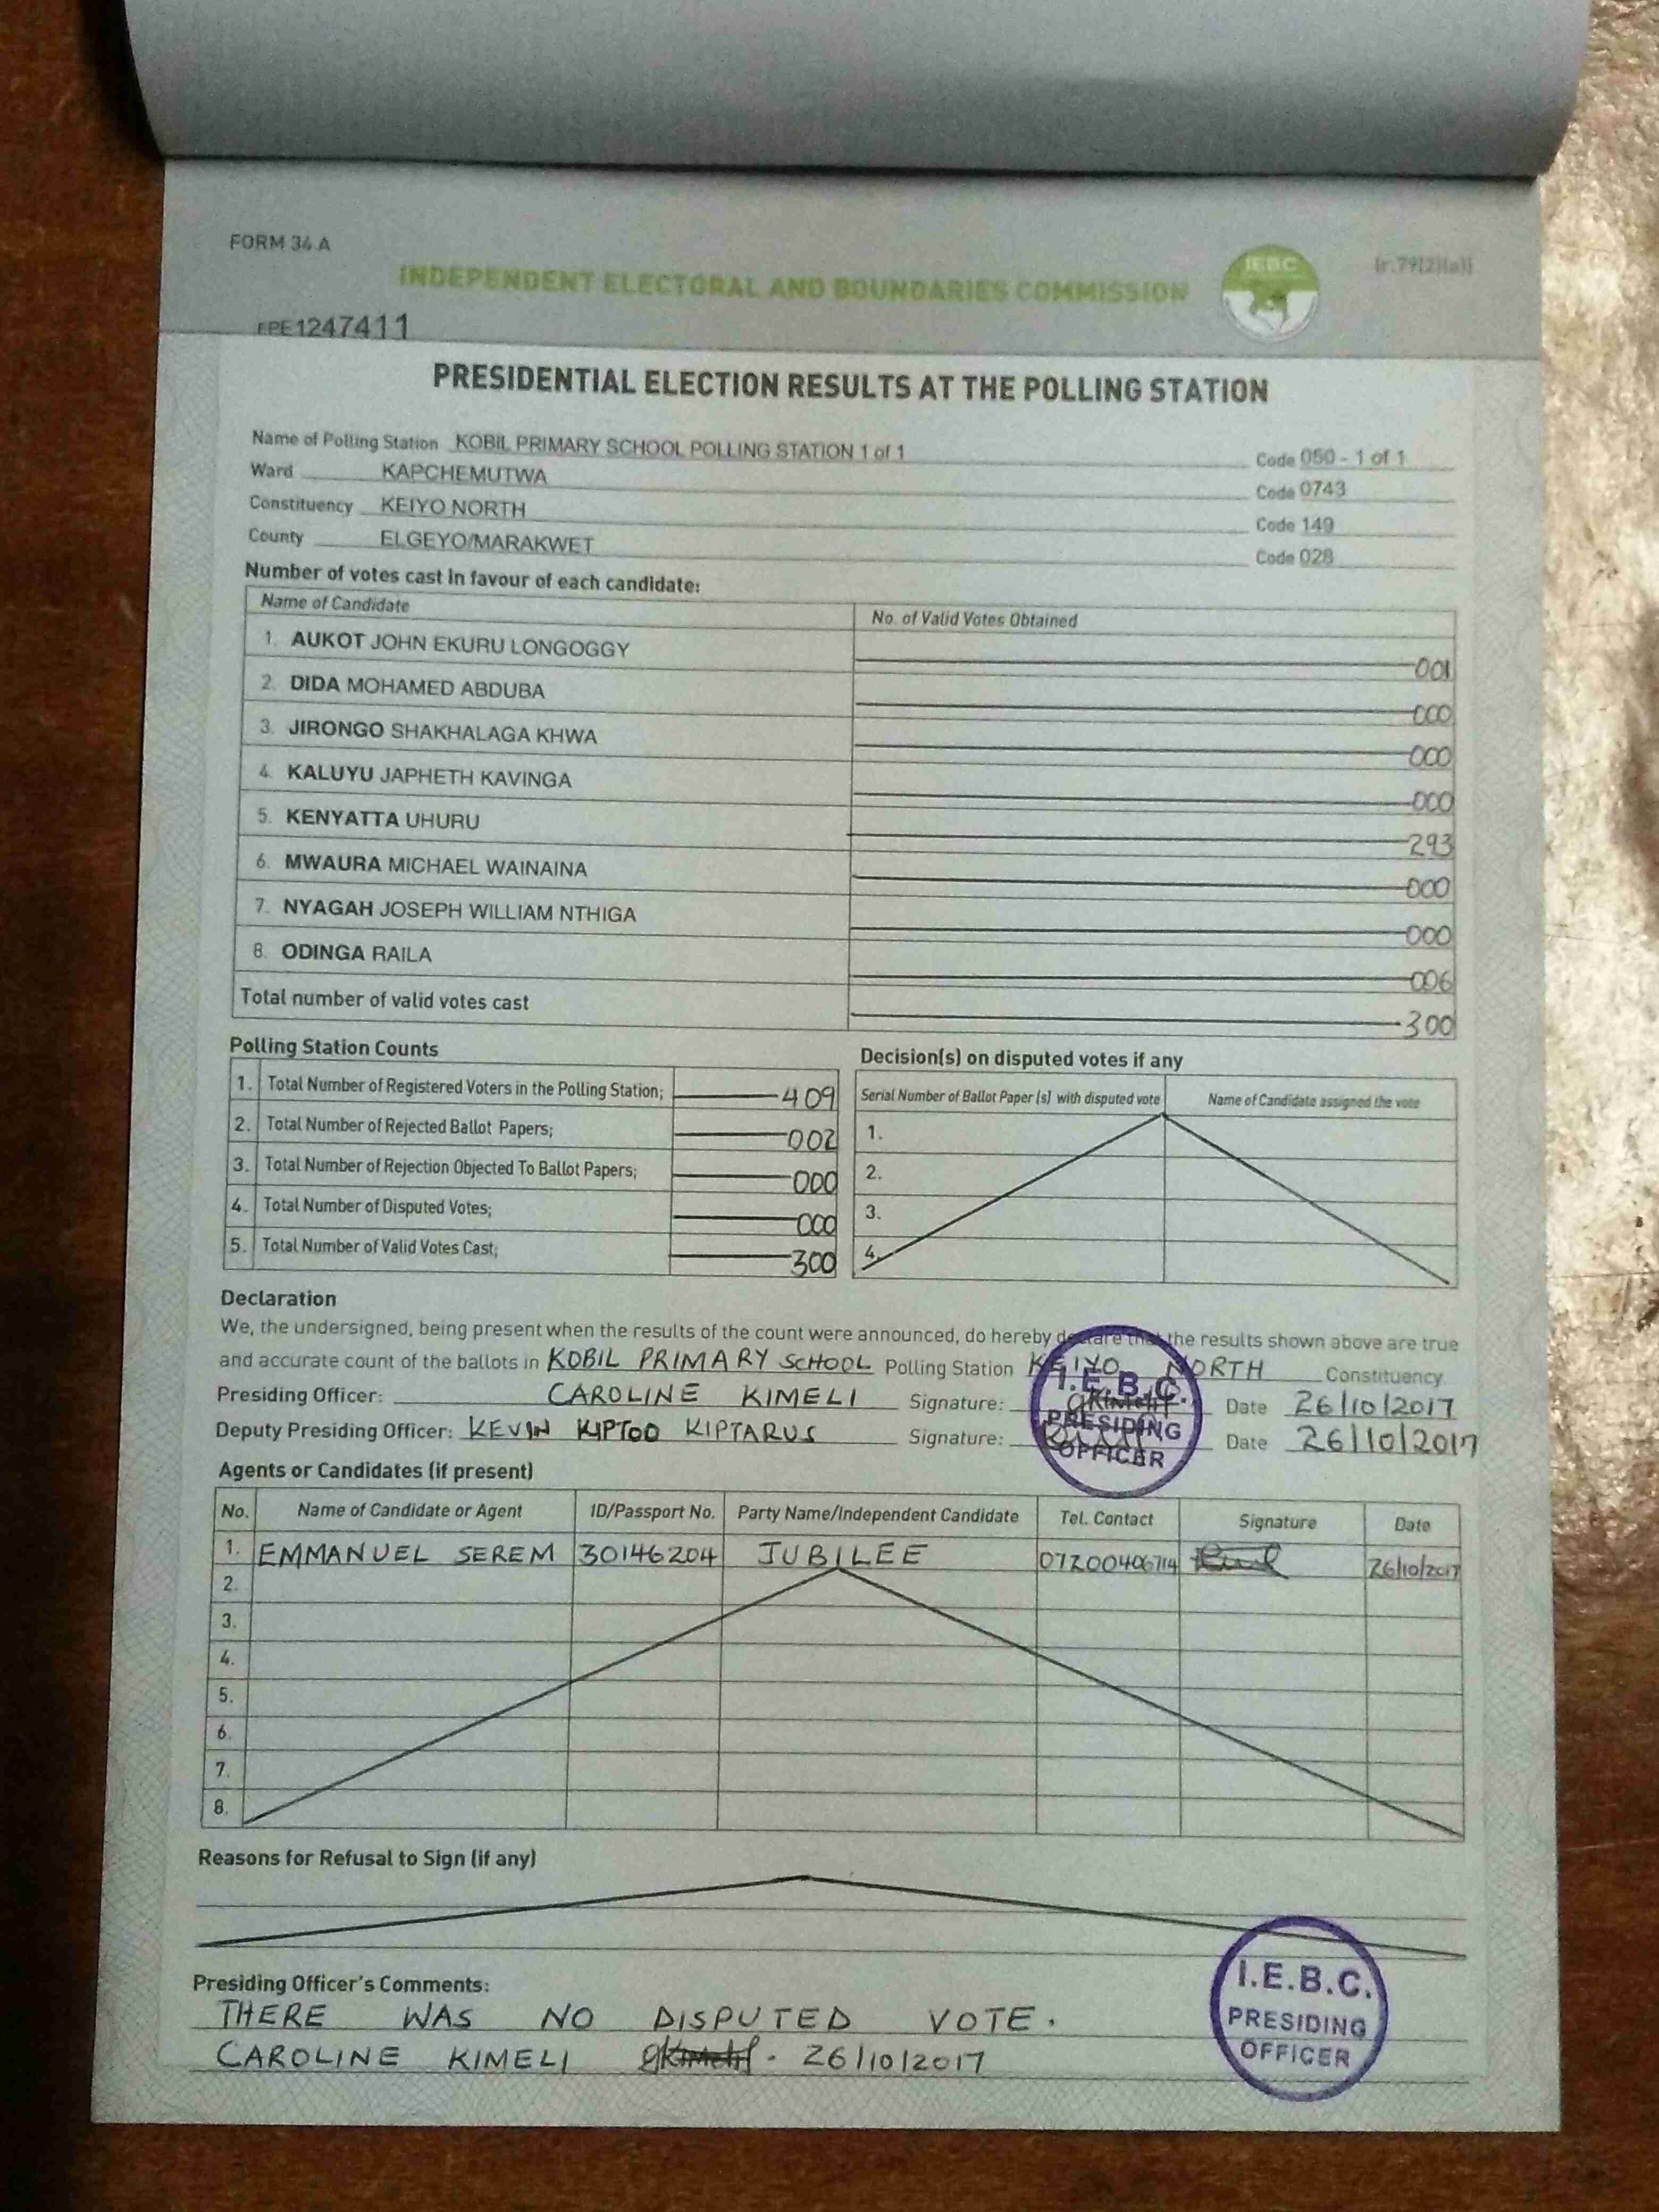 FORM 34 A
(r.79(2)(a))
INDEPENDENT ELECTORAL AND BOUNDARIES COMMISSION
IEBC
1247411
PRESIDENTIAL ELECTION RESULTS AT THE POLLING STATION
Name of Polling Station KOBIL PRIMARY SCHOOL POLLING STATION 1 of 1 Code 050 - 1 of 1
Ward KAPCHEMUTWA Code 0743
Constituency KEIYO NORTH Code 149
County ELGEYO/MARAKWET Code 028
Number of votes cast in favour of each candidate:
Name of Candidate No. of Valid Votes Obtained
1. AUKOT JOHN EKURU LONGOGGY 001
2. DIDA MOHAMED ABDUBA 000
3. JIRONGO SHAKHALAGA KHWA 000
4. KALUYU JAPHETH KAVINGA 000
5. KENYATTA UHURU 293
6. MWAURA MICHAEL WAINAINA 000
7. NYAGAH JOSEPH WILLIAM NTHIGA 000
8. ODINGA RAILA 006
Total number of valid votes cast 300
Polling Station Counts
1. Total Number of Registered Voters in the Polling Station; 409
2. Total Number of Rejected Ballot Papers; 002
3. Total Number of Rejection Objected To Ballot Papers; 000
4. Total Number of Disputed Votes; 000
5. Total Number of Valid Votes Cast; 300
Decision(s) on disputed votes if any
Serial Number of Ballot Paper (s) with disputed vote Name of Candidate assigned the vote
1.
2.
3.
4.
Declaration
We, the undersigned, being present when the results of the count were announced, do hereby declare that the results shown above are true
and accurate count of the ballots in KOBIL PRIMARY SCHOOL Polling Station KEIYO NORTH Constituency.
Presiding Officer: CAROLINE KIMELI Signature: Date 26/10/2017
Deputy Presiding Officer: KEVIN KIPTOO KIPTARUS Signature: Date 26/10/2017
I.E.B.C.
PRESIDING
OFFICER
Agents or Candidates (if present)
No. Name of Candidate or Agent ID/Passport No. Party Name/Independent Candidate Tel. Contact Signature Date
1. EMMANUEL SEREM 30146204 JUBILEE 07200406714 26/10/2017
2.
3.
4.
5.
6.
7.
8.
Reasons for Refusal to Sign (if any)
Presiding Officer's Comments:
THERE WAS NO DISPUTED VOTE.
CAROLINE KIMELI 26/10/2017
I.E.B.C.
PRESIDING
OFFICER